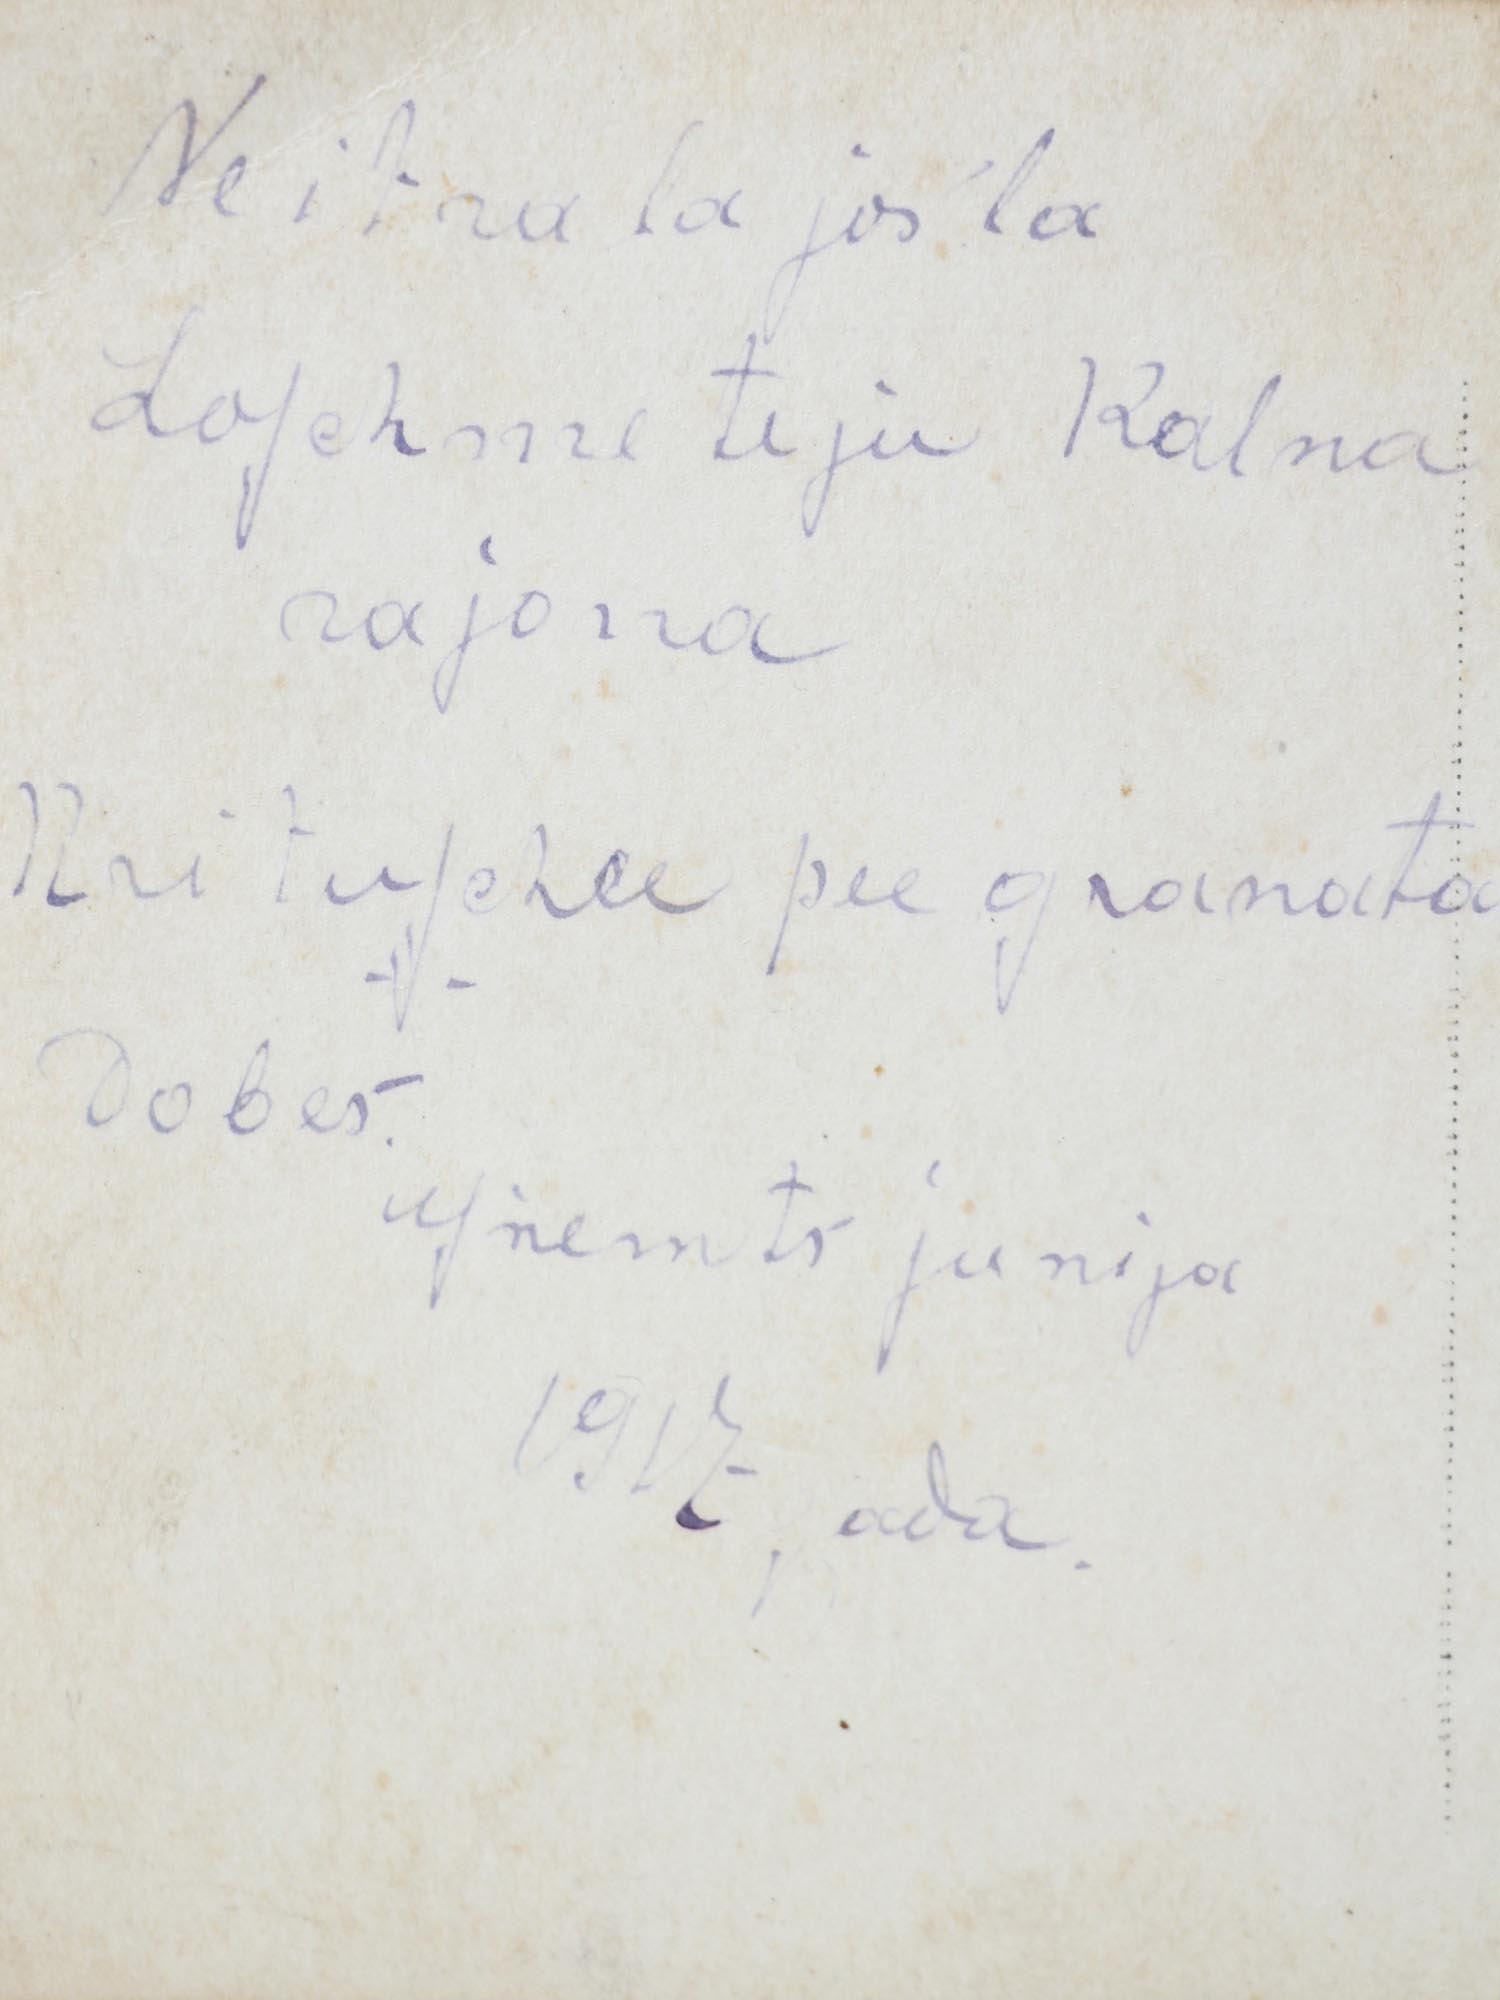 Neitrala josla
Loſchmeteju Kalna
rajona
Krituſchee pee granata
Dobes.
uſnemts junija
1917, ada.